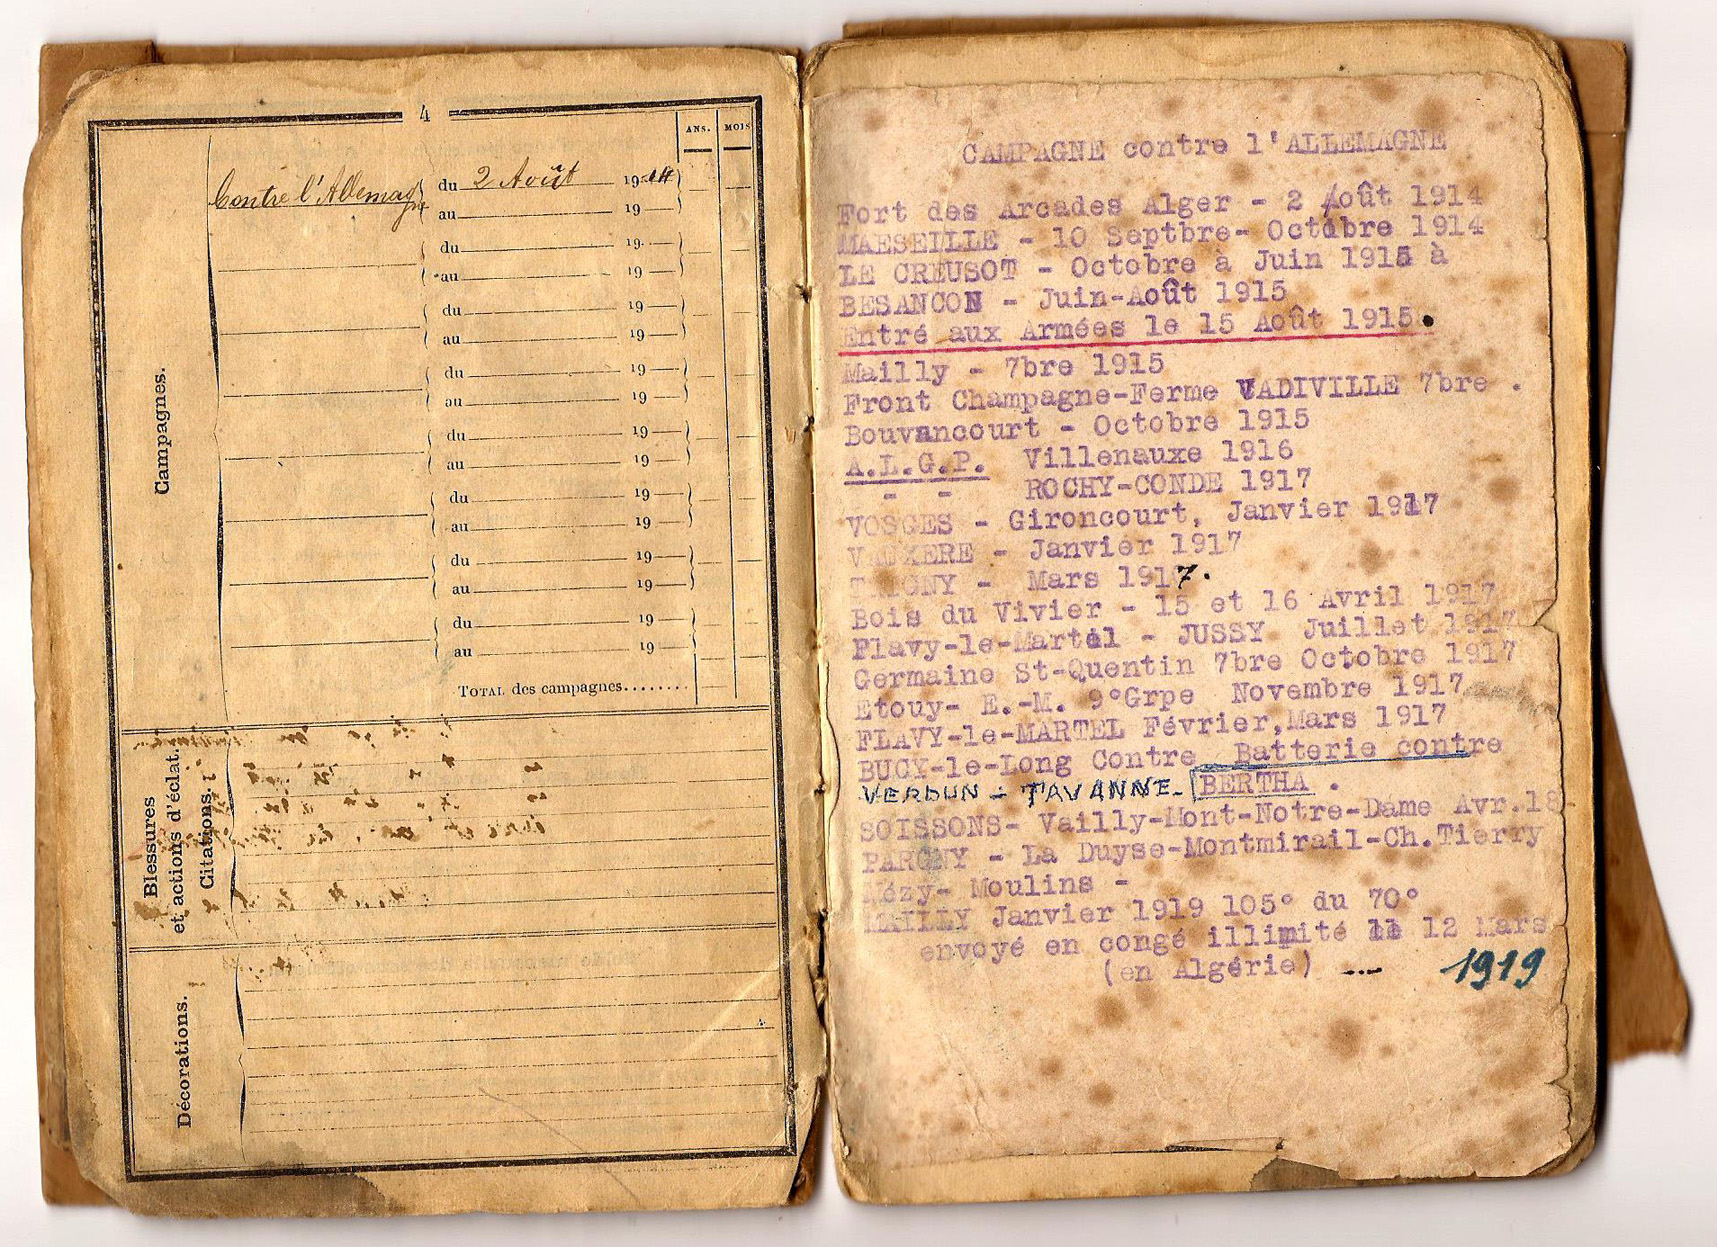 4
ANS. MOIS
Campagnes.
Contre l'Allemagne du 2 Août 1914
au 19
du 19
au 19
du 19
au 19
du 19
au 19
du 19
au 19
du 19
au 19
du 19
au 19
du 19
au 19
TOTAL des campagnes........
Blessures
et actions d'éclat.
Citations.
Décorations.
CAMPAGNE contre l'ALLEMAGNE
Fort des Arcades Alger - 2 Août 1914
MAESEILLE - 10 Septbre- Octobre 1914
LE CREUSOT - Octobre à Juin 1915 à
BESANCON - Juin-Août 1915
Entré aux Armées le 15 Août 1915.
Mailly - 7bre 1915
Front Champagne-Ferme VADIVILLE 7bre .
Bouvancourt - Octobre 1915
A.L.G.P. Villenauxe 1916
- - ROCHY-CONDE 1917
VOSGES - Gironcourt, Janvier 1917
VAUXERE - Janvier 1917
- Mars 1917.
Bois du Vivier - 15 et 16 Avril 1917
Flavy-le-Martel - JUSSY Juillet 1917
Germaine St-Quentin 7bre Octobre 1917
Etouy- E.-M. 9°Grpe Novembre 1917
FLAVY-le-MARTEL Février,Mars 1917
BUCY-le-Long Contre Batterie contre
VERDUN - TAVANNE- BERTHA .
SOISSONS- Vailly-Mont-Notre-Dame Avr.18-
PARGNY - La Duyse-Montmirail-Ch.Tierry
Mézy- Moulins -
MAILLY Janvier 1919 105° du 70°
envoyé en congé illimité le 12 Mars
(en Algérie) --- 1919